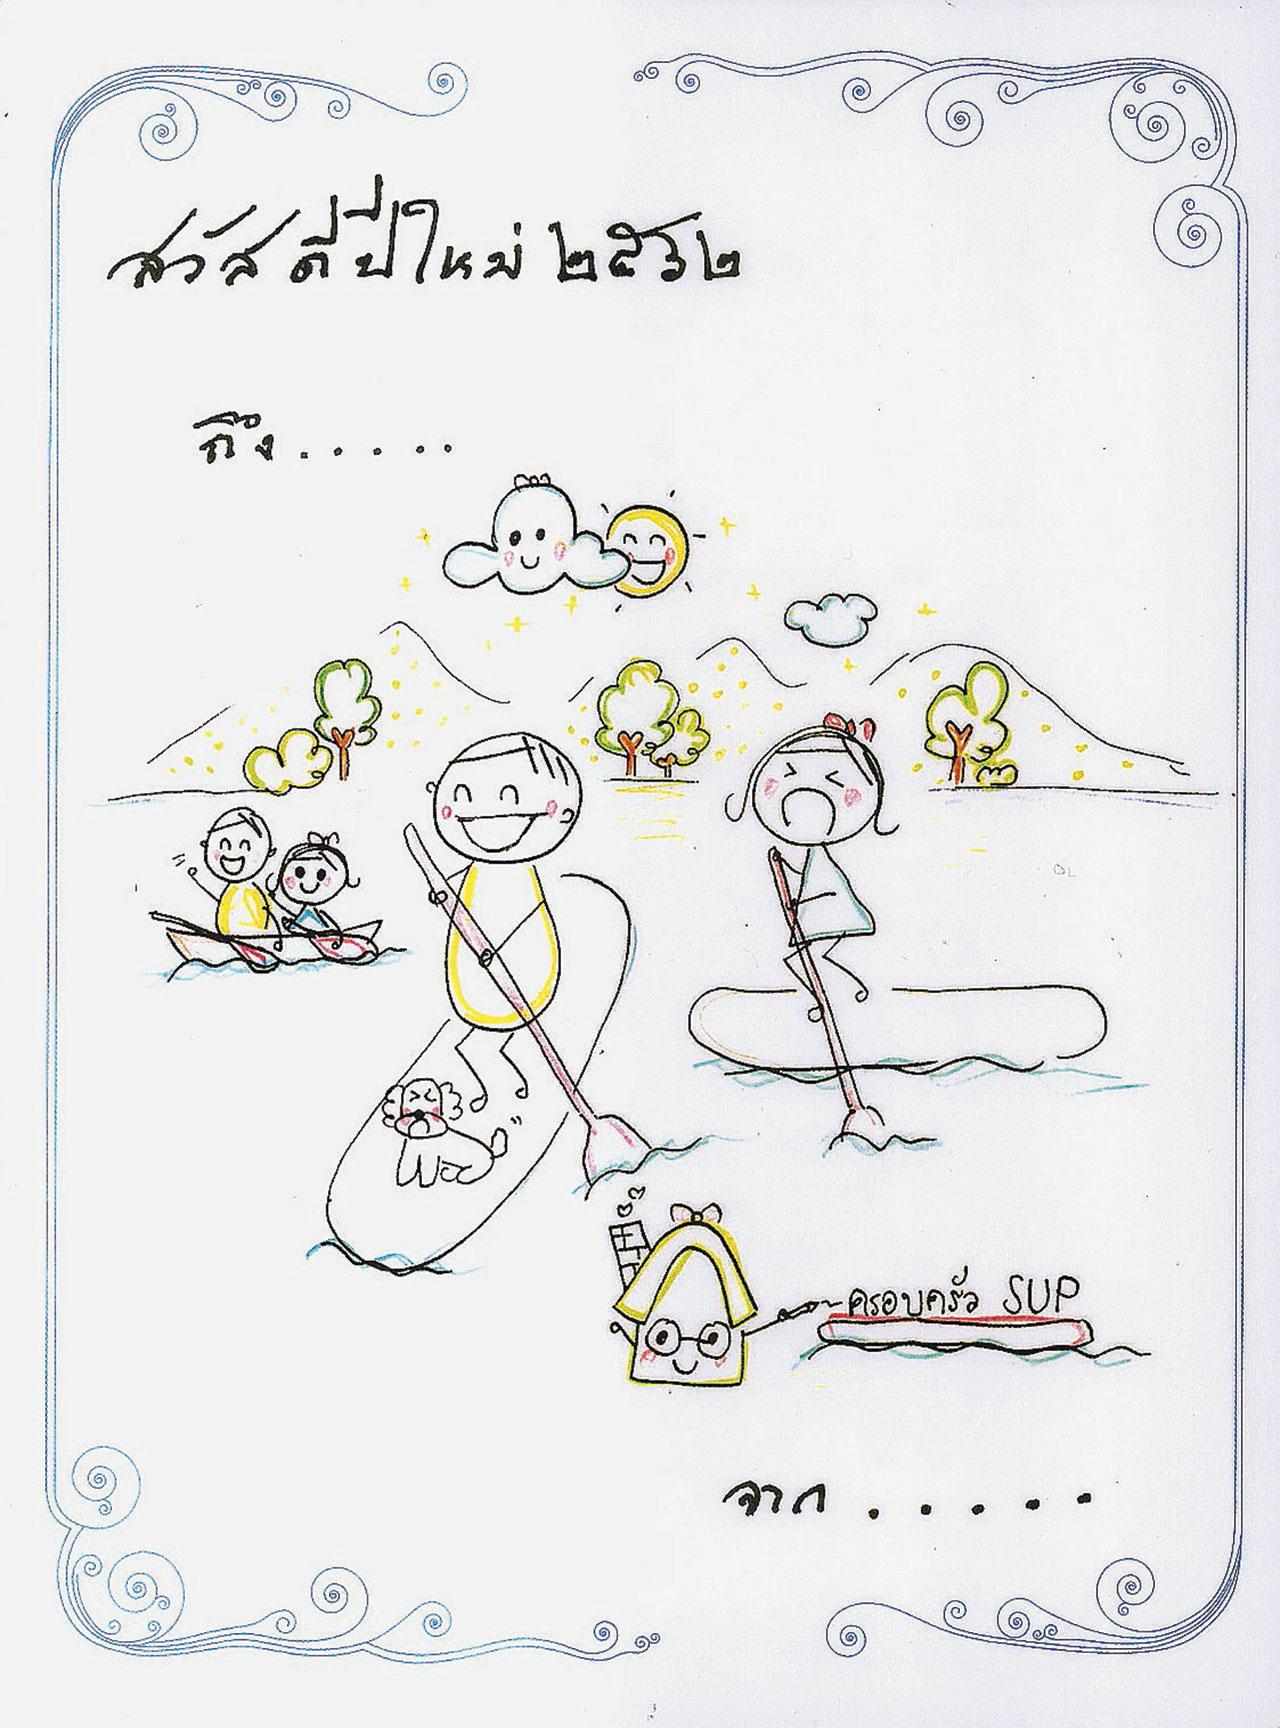 สวัสดีปีใหม่ ๒๕๖๒
ถึง.....
ครอบครัว SUP
จาก.....